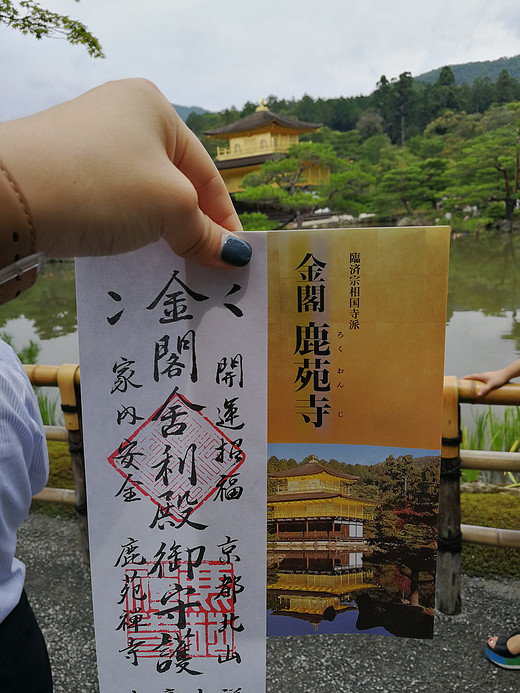 開運招福
京都北山
金閣舎利殿御守護
家内安全
鹿苑禅寺
臨済宗相国寺派
金閣 鹿苑寺
ろくおんじ